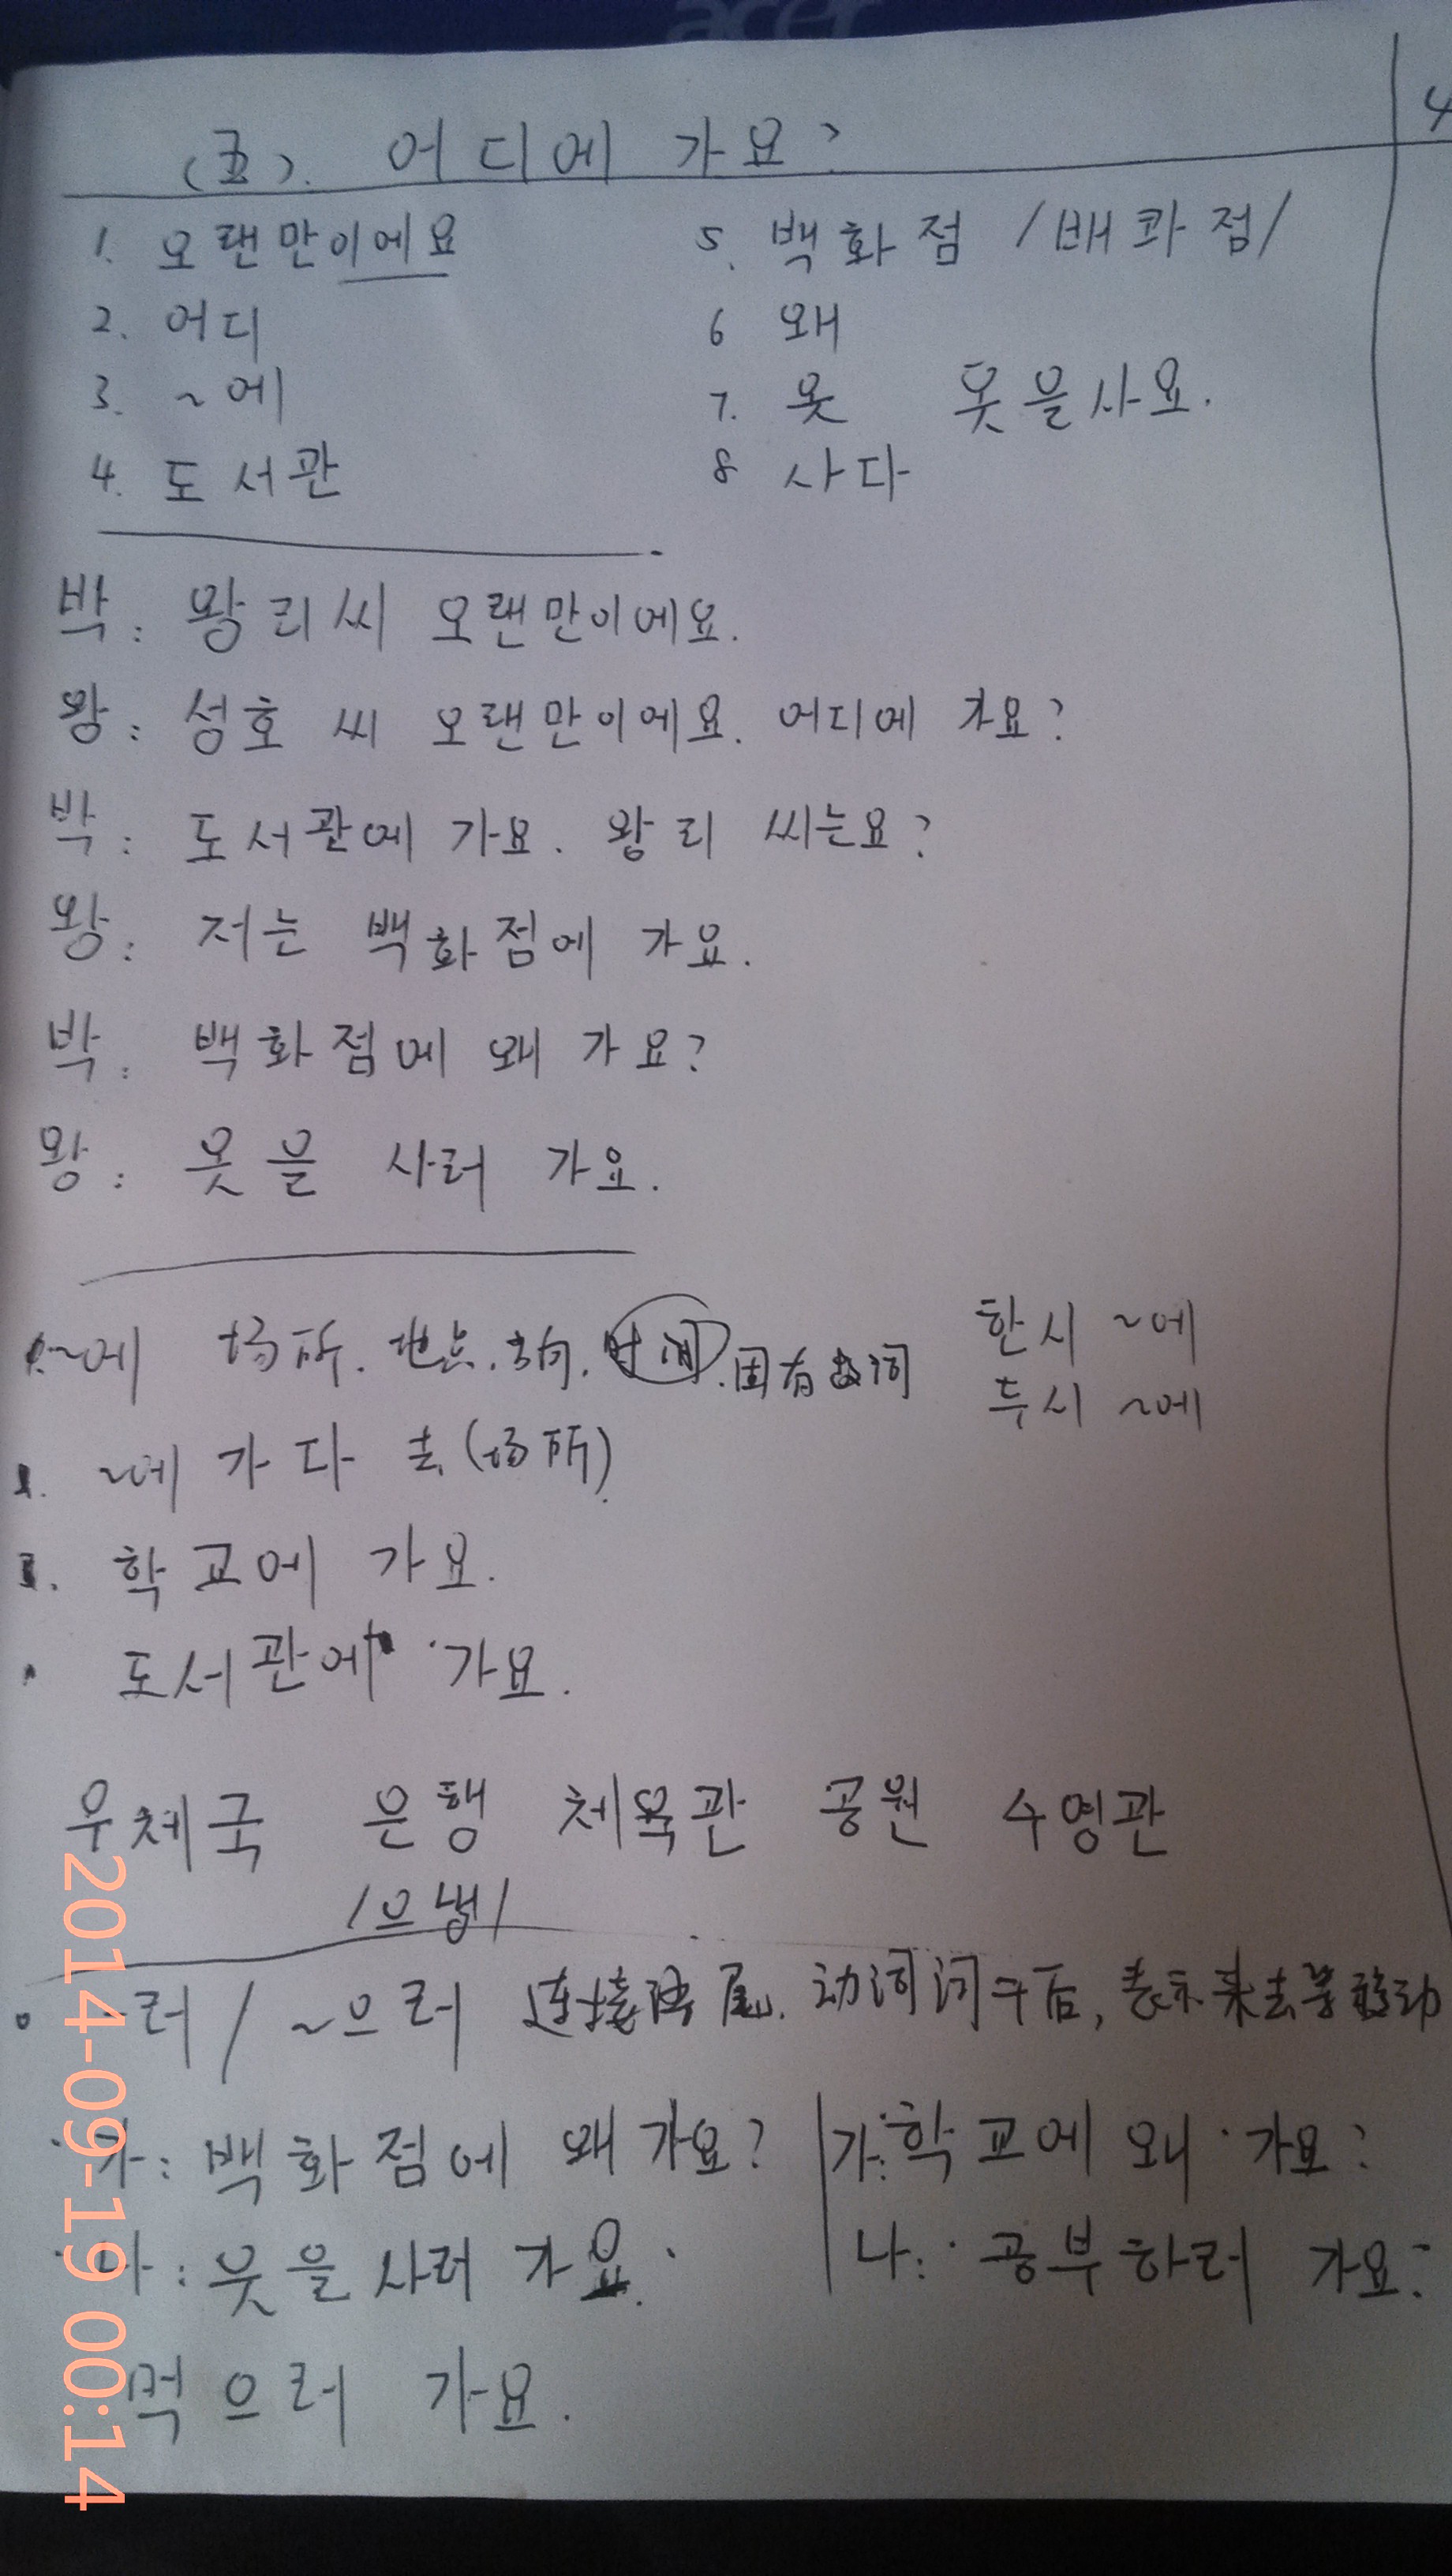 acer
(五). 어디에 가요?
4
1. 오랜만이에요
2. 어디
3. ~에
4. 도서관
5. 백화점 /배콰점/
6 왜
7. 옷 옷을사요.
8 사다
박: 왕리씨 오랜만이에요.
왕: 성호 씨 오랜만이에요. 어디에 가요?
박: 도서관에 가요. 왕리 씨는요?
왕: 저는 백화점에 가요.
박: 백화점에 왜 가요?
왕: 옷을 사러 가요.
1.~에 场所.地点.方向.时间.固有数词 한시 ~에
두시 ~에
~에 가다 去(场所)
학교에 가요.
도서관에 가요.
우체국 은행 체육관 공원 수영관
/으냉/
~러/~으러 连接词尾.动词词干后,表示来去等移动
가: 백화점에 왜 가요?
나: 옷을 사러 가요.
가: 학교에 왜 가요?
나: 공부하러 가요.
먹으러 가요.
2014-09-19 00:14